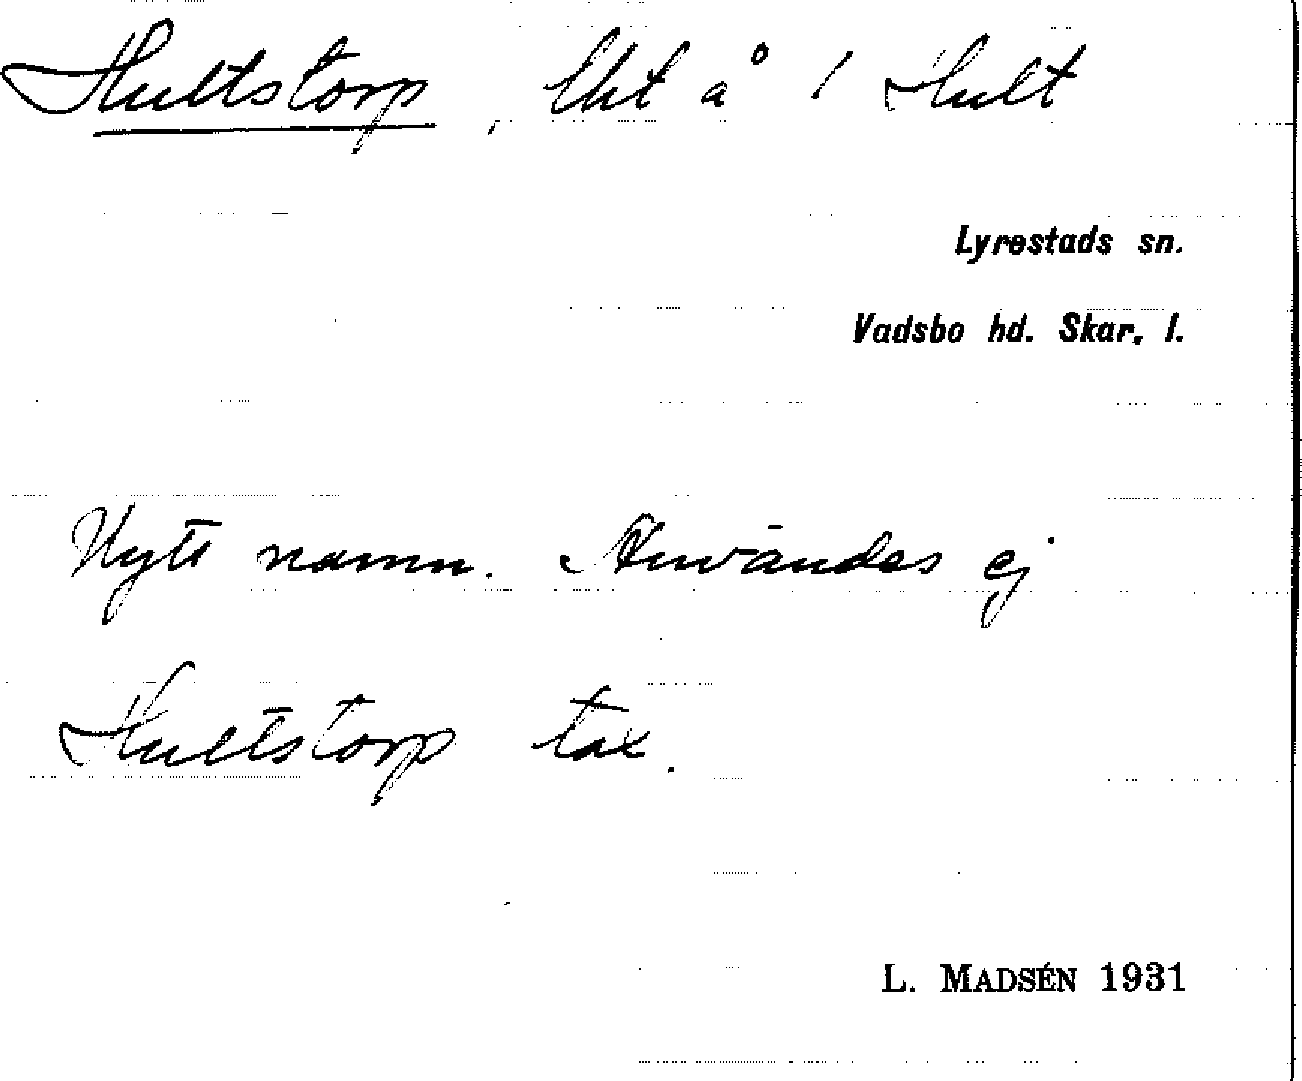 Hultstorp, lht å 1 Hult
Lyrestads sn.
Vadsbo hd. Skar. l.
Nytt namn. Användes ej
Hultstorp tax.
L. MADSÉN 1931